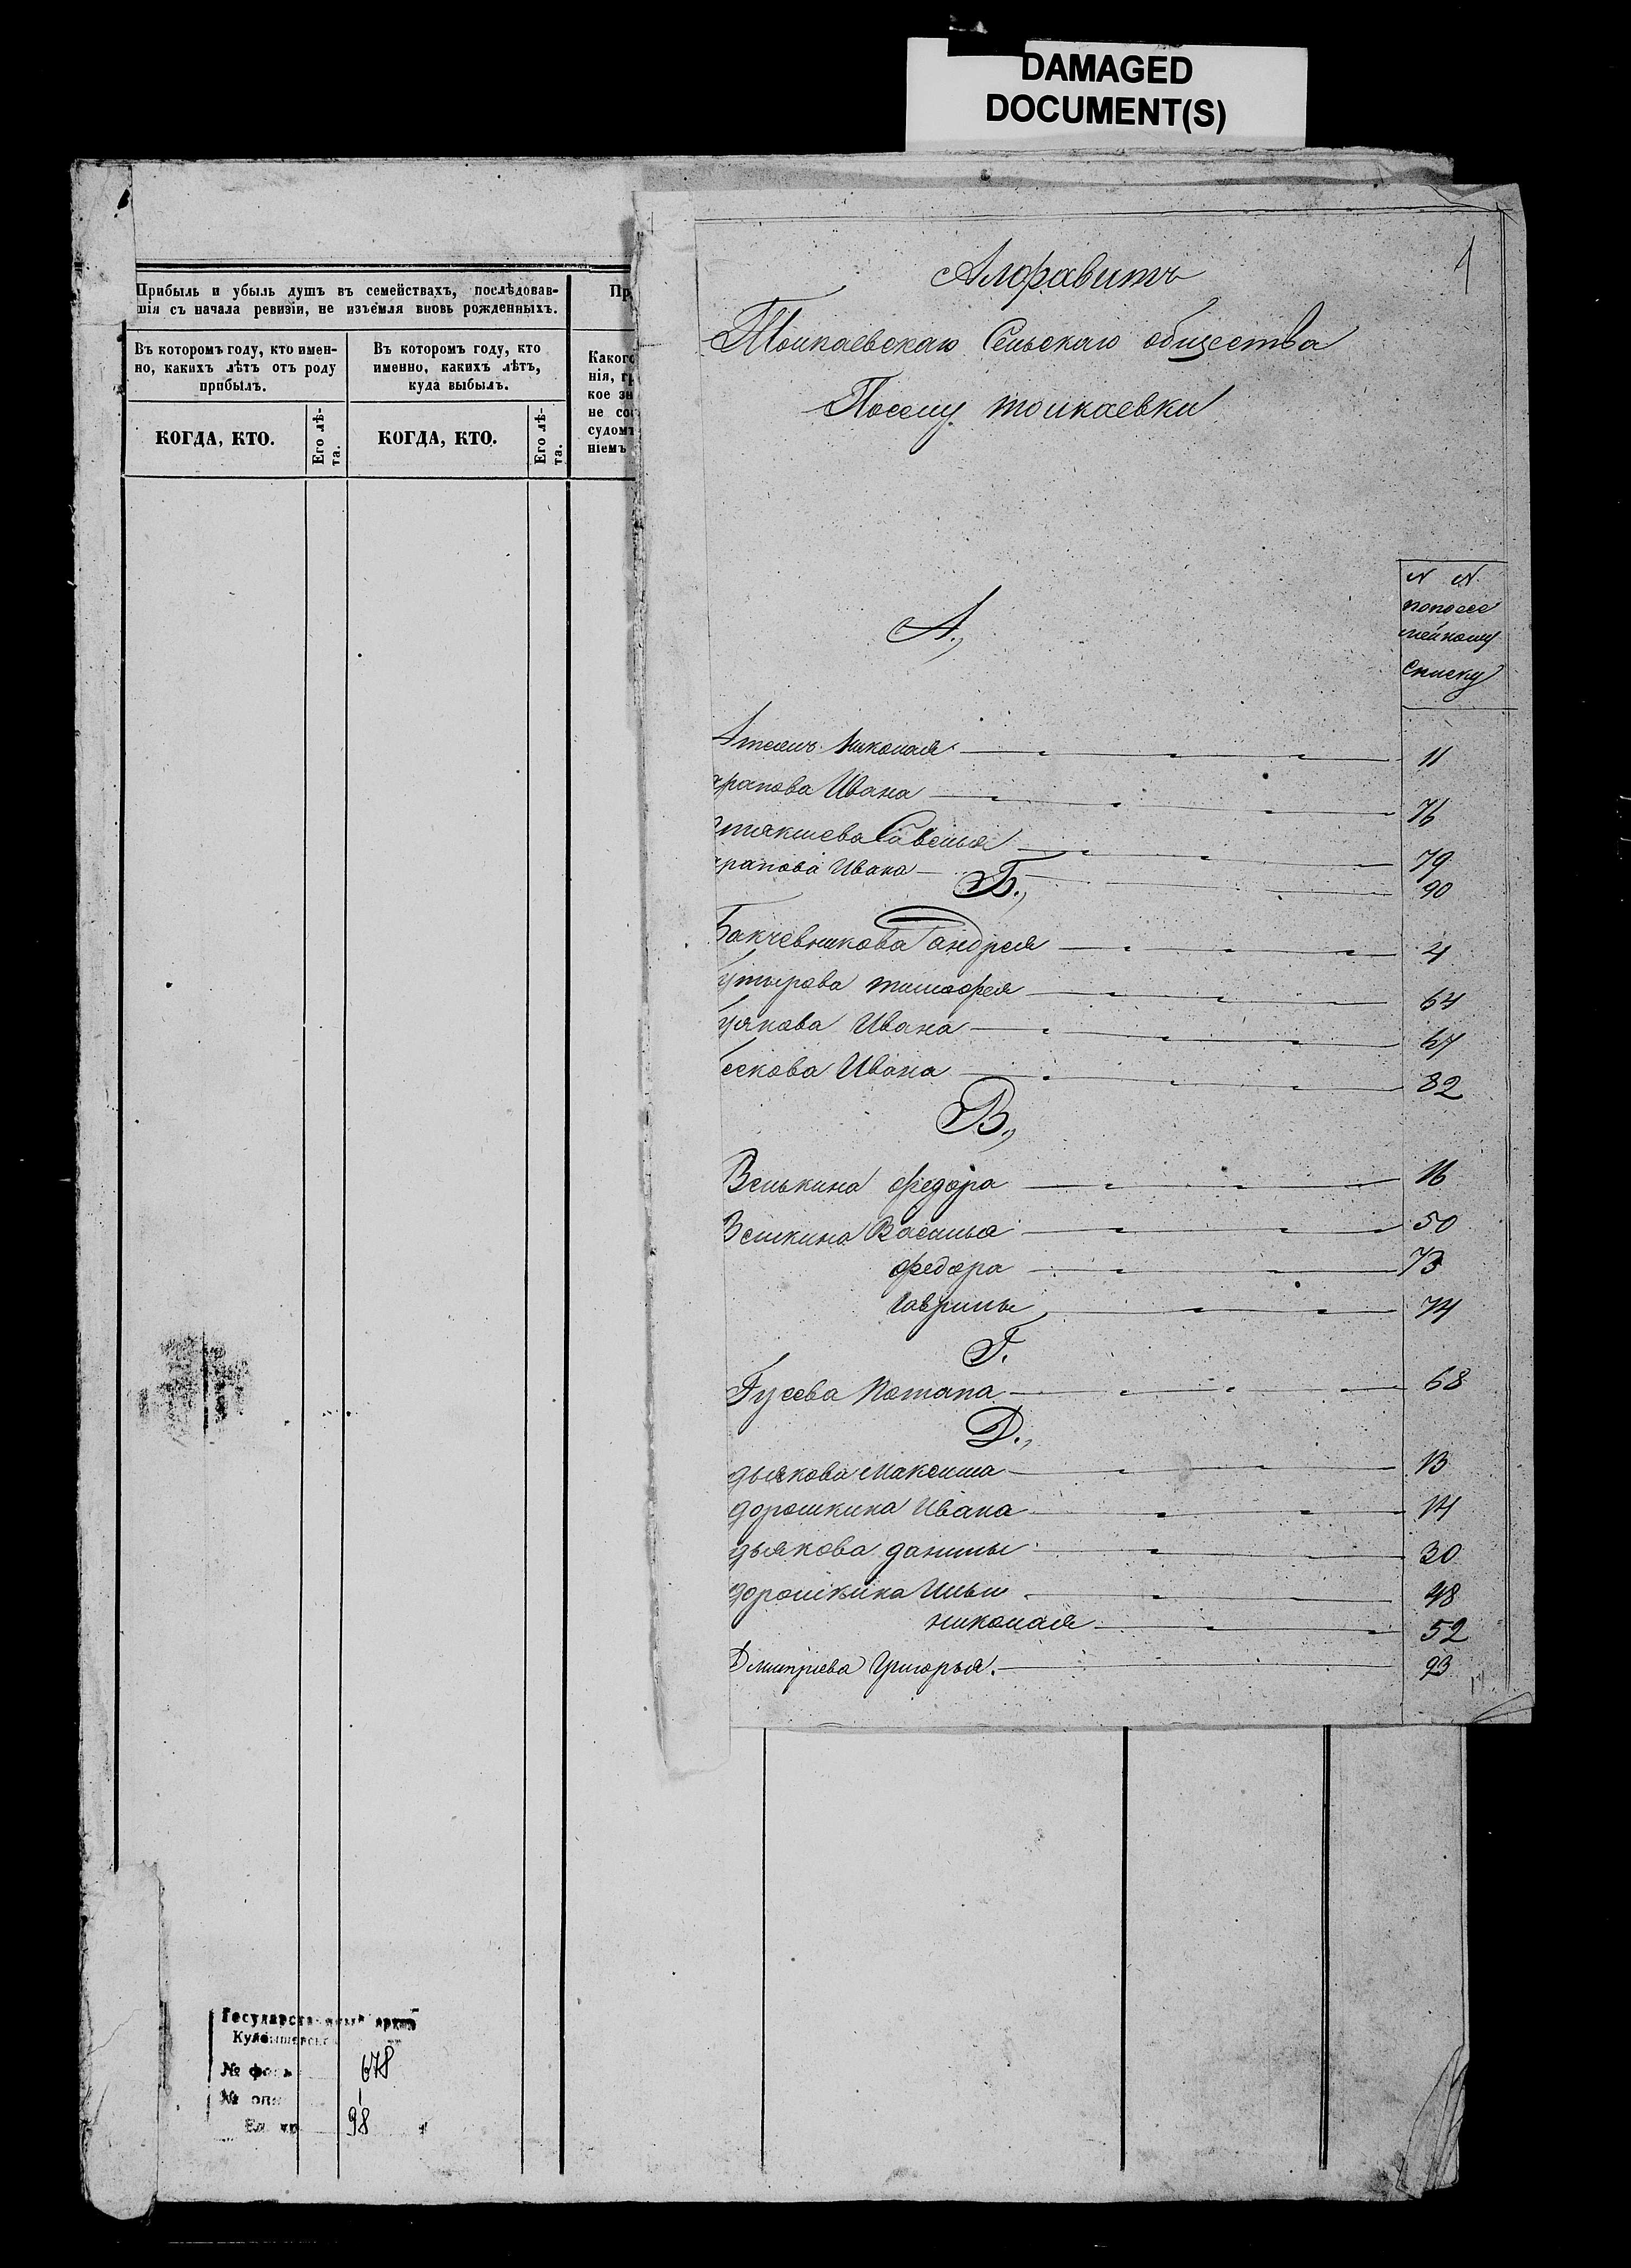 DAMAGED
DOCUMENT(S)
Прибыль и убыль душъ въ семействахъ, послѣдовав-
шія съ начала ревизіи, не изъемля вновь рожденныхъ.
Въ которомъ году, кто имен-
но, какихъ лѣтъ отъ роду
прибылъ.
Въ которомъ году, кто
именно, какихъ лѣтъ,
куда выбылъ.
КОГДА, КТО.
Его лѣ-
та.
КОГДА, КТО.
Его лѣ-
та.
Пр
Какого
нія, гр
кое зн
не сос
судомъ
ніемъ
1
Алфавитъ
Толкаевскаго Сельскаго общества
Поселу толкаевки
N N
попосе
мейному
списку
А.,
Николая 11
арапова Ивана 76
Савелья 79
арапова Ивана 90
Б.,
Бакчевникова андрея 4
утырова тимофея 64
Ивана 67
Ивана 82
В.,
Велькина федора 16
Велкина Василья 50
федора 73
гаврилы 74
Г.
Гусева Потапа 68
Д.,
дьякова Максима 13
дорошкина Ивана 14
дьякова данилы 30
дорошкина Ильи 48
николая 52
Дмитріева Григорья. 93
Государственный архив
№ фон 678
№ опи 1
Ед. хр 98